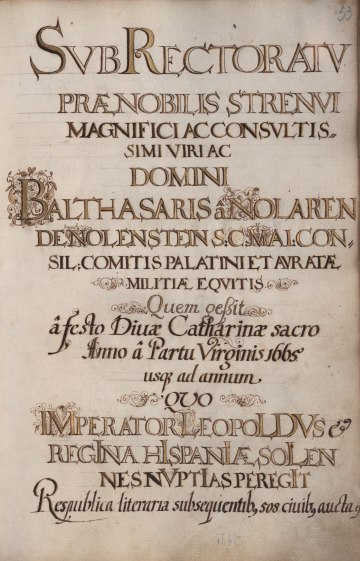 53
SVB RECTORATV
PRÆNOBILIS STRENVI
MAGNIFICI AC CONSVLTIS-
SIMI VIRI AC
DOMINI
BALTHASARIS â NOLAREN
DE NOLENSTEIN S.C. MAI. CON-
SIL: COMITIS PALATINI ET AVRATÆ
MILITIÆ EQVITIS
Quem gessit
â festo Divæ Catharinæ sacro
Anno â Partu Virginis 1665
usq; ad annum
QVO
IMPERATOR LEOPOLDVS &
REGINA HISPANIÆ, SOLEN
NES NVPTIAS PEREGIT
Respublica literaria subsequentib, sos civib, aucta
1665